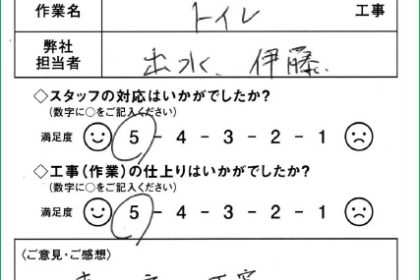 作業名 トイレ 工事
弊社
担当者 出水、伊藤
◇スタッフの対応はいかがでしたか?
(数字に○をご記入ください)
満足度 5 - 4 - 3 - 2 - 1
◇工事(作業)の仕上りはいかがでしたか?
(数字に○をご記入ください)
満足度 5 - 4 - 3 - 2 - 1
〈ご意見・ご感想〉